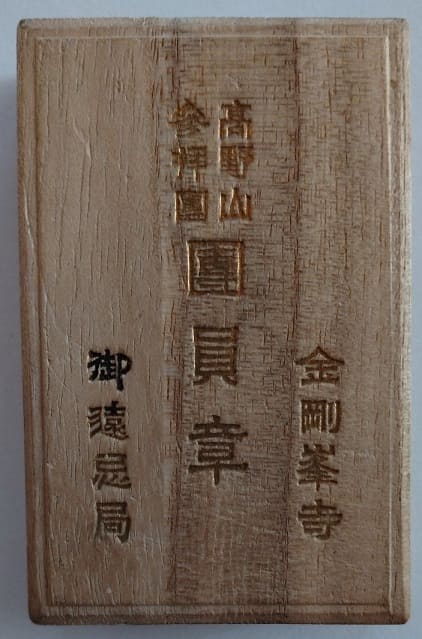 金剛峯寺
高野山
參拝團
團員章
御遠忌局